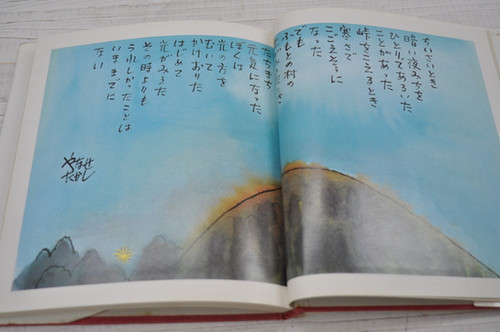 ちいさいとき
暗い夜みちを
ひとりであるいた
ことがあった
峠をこえるとき
寒さで
こごえそうに
なった
でも
ふもとの村の
たちまち
元気になった
ぼくは
光の方を
むいて
かけおりた
はじめて
光がみえた
その時よりも
うれしかったことは
いままでに
ない
やなせ
たかし